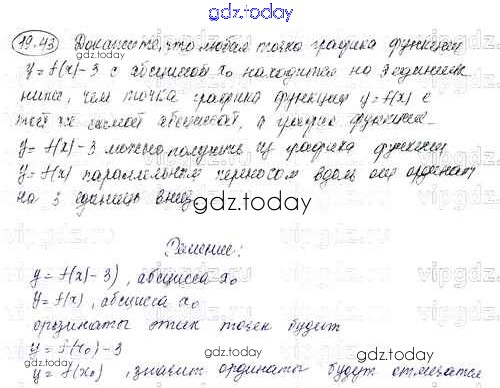 gdz.today
19.43 Докажите, что любая точка графика функции
y = f(x) - 3 с абсциссой x₀ находится на 3 единиц
ниже, чем точка графика функции y = f(x) с
той же самой абсциссой, а график функции
y = f(x) - 3 можно получить из графика функции
y = f(x) параллельным переносом вдоль оси ординат
на 3 единицы вниз
gdz.today
Решение:
y = f(x) - 3), абсцисса x₀
y = f(x), абсцисса x₀
ординаты этих точек будут
y = f(x₀) - 3
y = f(x₀), значит ординаты будут отличатся
gdz.today
gdz.today